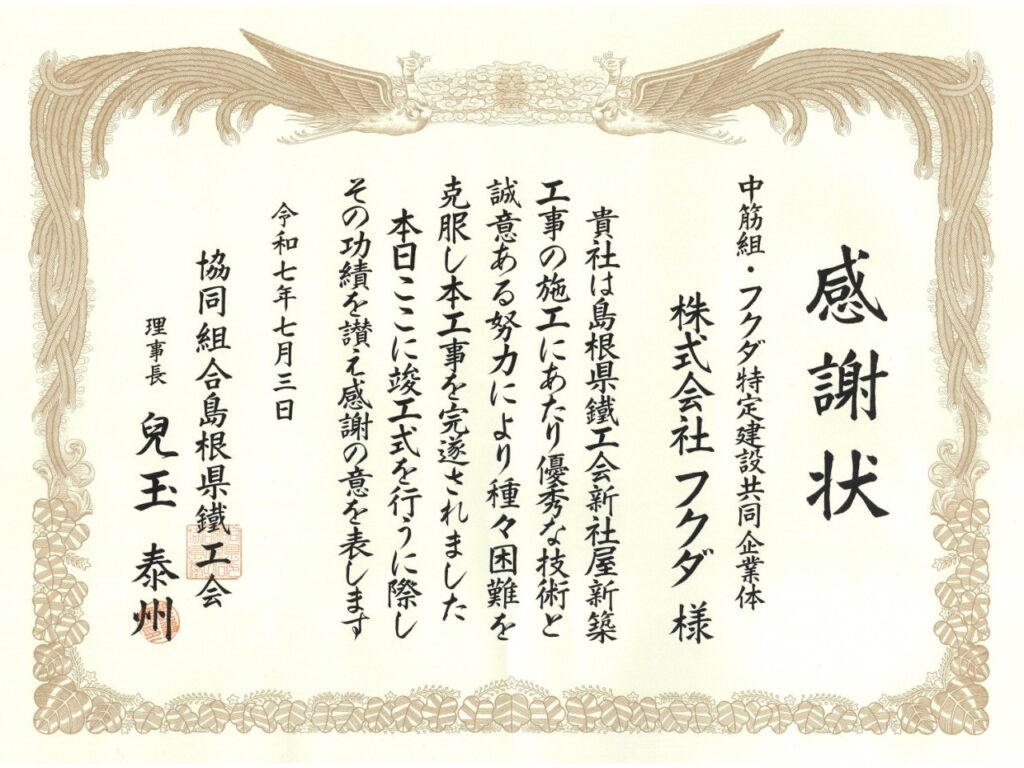 感謝状
中筋組・フクダ特定建設共同企業体
株式会社フクダ 様
貴社は島根県鐵工会新社屋新築
工事の施工にあたり優秀な技術と
誠意ある努力により種々困難を
克服し本工事を完遂されました
本日ここに竣工式を行うに際し
その功績を讃え感謝の意を表します
令和七年七月三日
協同組合島根県鐵工会
理事長 兒玉 泰州